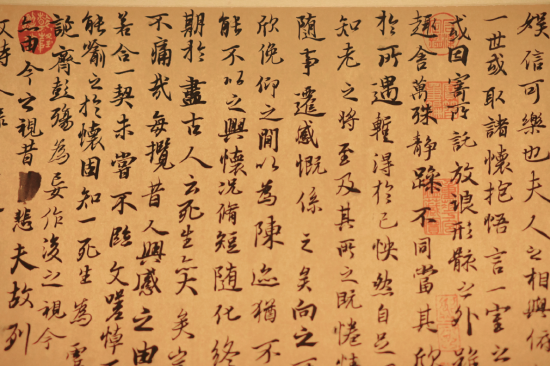 娛信可樂也夫人之相與俯
一世或取諸懷抱悟言一室之
或因寄所託放浪形骸之外雖
趣舍萬殊靜躁不同當其欣
於所遇蹔得於己怏然自足
知老之將至及其所之既惓情
隨事遷感慨係之矣向之
欣俛仰之間以為陳迹猶不
能不以之興懷況脩短隨化終
期於盡古人云死生亦大矣
不痛哉每攬昔人興感之由
若合一契未嘗不臨文嗟悼
能喻之於懷固知一死生為
誕齊彭殤為妄作後之視今
亦由今之視昔悲夫故列